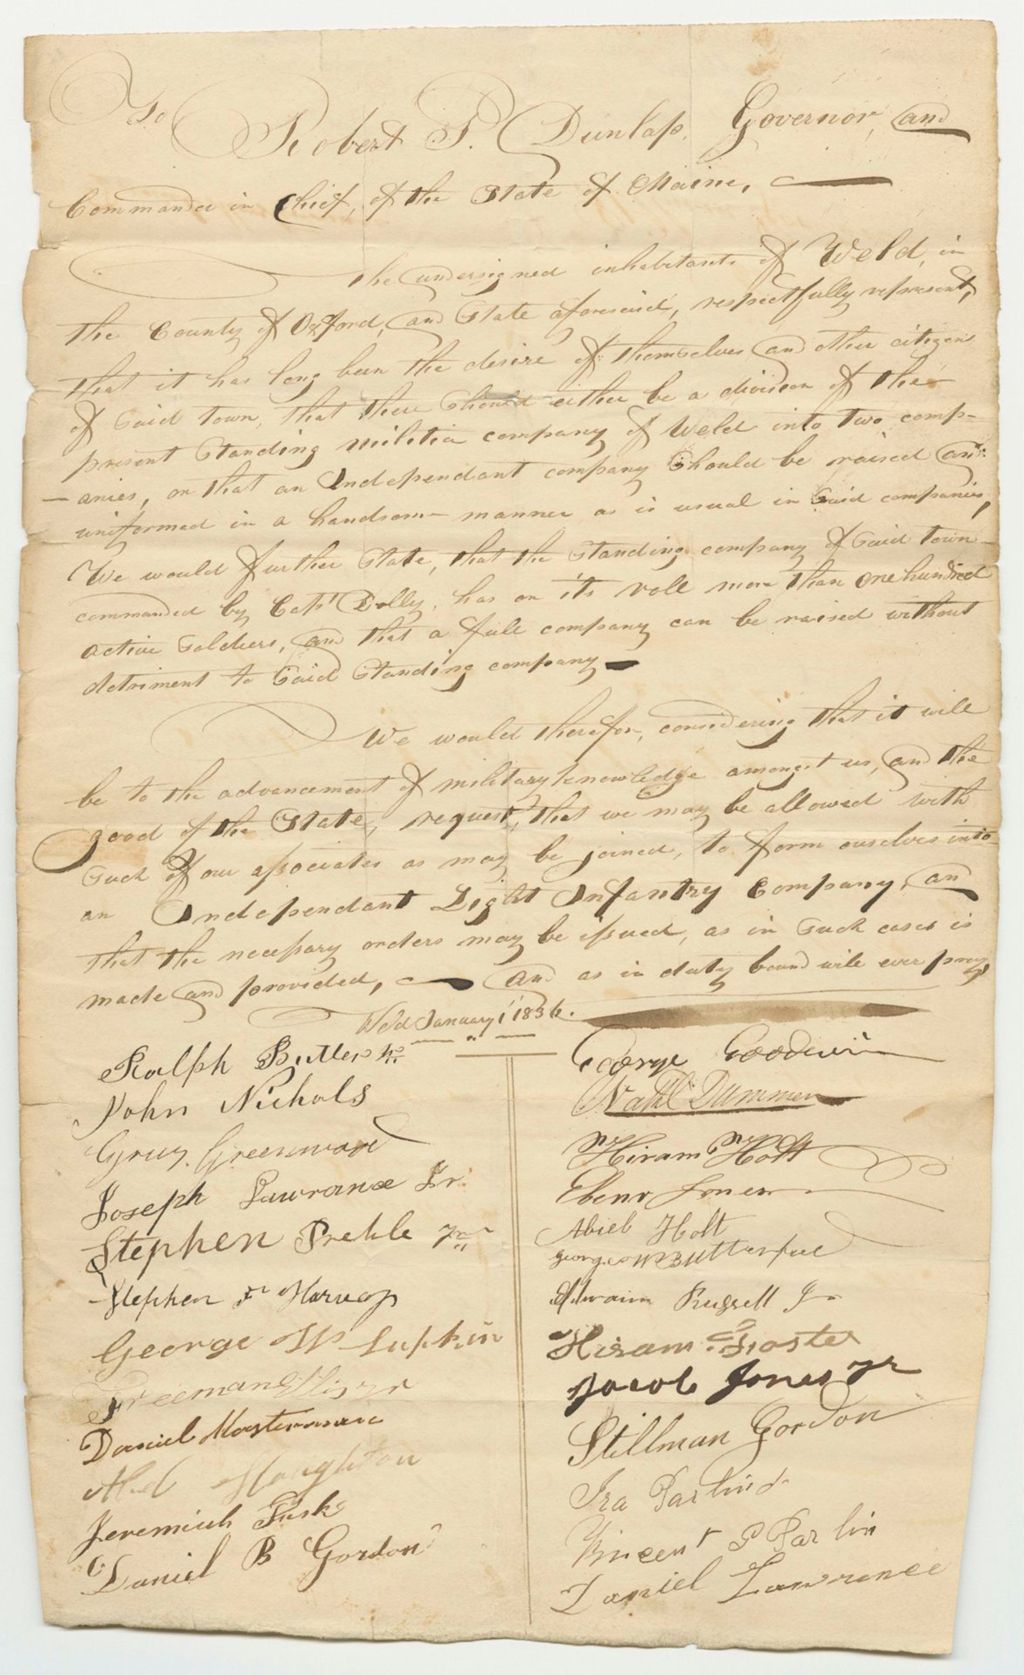 To Robert P. Dunlap. Governor, and
Commander in Chief, of the State of Maine,
The undersigned inhabitants of Weld, in
the County of Oxford, and State aforesaid, respectfully represent,
that it has long been the desire of themselves and other citizens
of Said town, that there Should either be a division of the
present Standing militia company of Weld into two comp-
-anies, or that an Independant company Should be raised and
uniformed in a handsome manner as is usual in Said companies,
We would further State, that the Standing company of Said town
commanded by Capt Dolly, has on its roll more than one hundred
active Soldiers, and that a full company can be raised without
detriment to Said Standing company
We would therefor, considering that it will
be to the advancement of military knowledge amongst us, and the
good of the State, request, that we may be allowed with
Such of our associates as may be joined, to form ourselves into
an Independant Light Infantry Company, and
that the necessary orders may be issued, as in Such cases is
made and provided, and as in duty bound will ever pray
Weld January 1 1836.
Ralph Butler
John Nichols
Greenwood
Joseph Lawrance Jr.
Stephen Preble Jr
Stephen
George W Lufkin
Freeman Ellis Jr
Daniel Masterman
Abel Houghton
Jeremiah Fisk
Daniel B Gordon
George Goodwin
Nathl Dummer
Hiram Holt
Ebenr Jones
Abiel Holt
George W Butterfield
Russell Jr
Hiram Foster
Jacob Jones Jr
Stillman Gordon
Ira Parlin
Vincent P Parlin
Daniel Lawrence